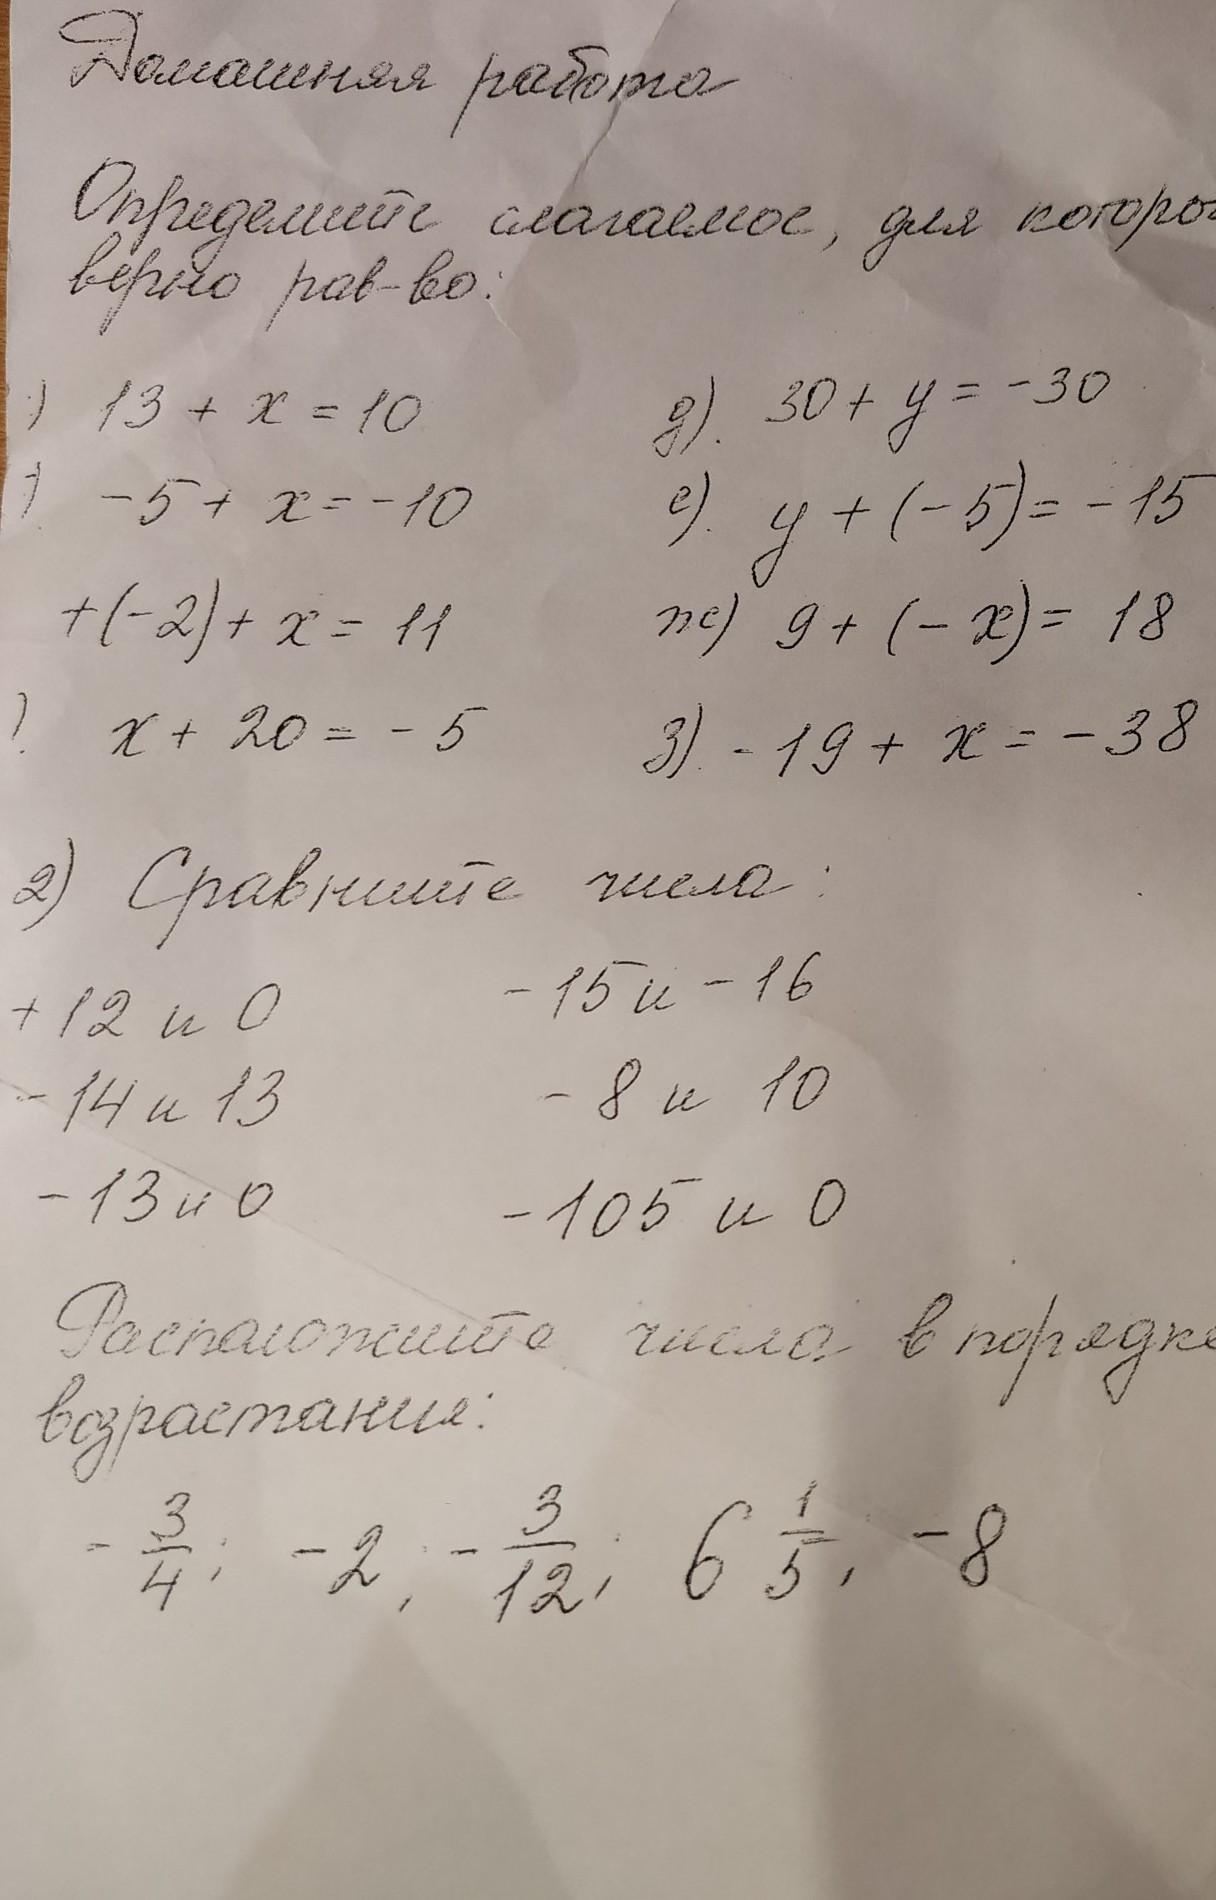 Домашняя работа
Определите слагаемое, для которо
верно рав-во:
) 13 + x = 10
д). 30 + y = -30
). -5 + x = -10
е). y + (-5) = -15
+(-2) + x = 11
ж) 9 + (-x) = 18
). x + 20 = -5
з). -19 + x = -38
2) Сравните числа:
+12 и 0
-15 и -16
-14 и 13
-8 и 10
-13 и 0
-105 и 0
Расположите числа в порядке
возрастания:
-3/4; -2; -3/12; 6 1/5; -8